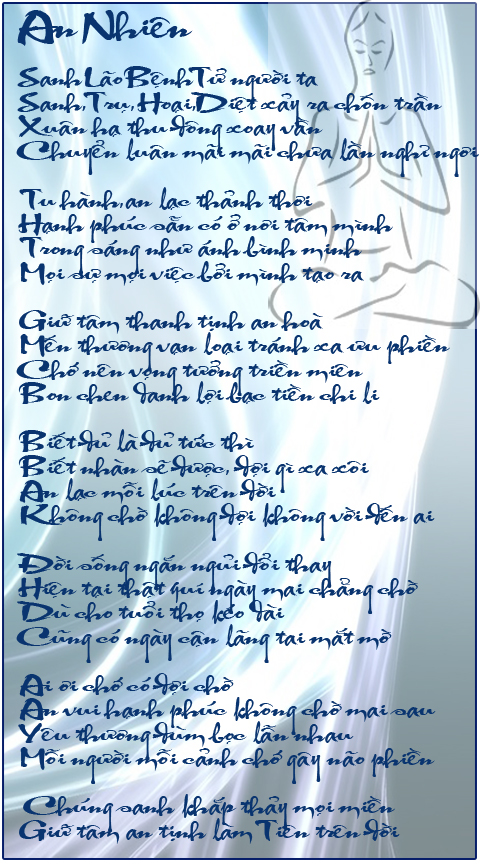 An Nhiên
Sanh Lão Bệnh Tử người ta
Sanh, Trụ, Hoại, Diệt xảy ra chốn trần
Xuân hạ thu đông xoay vần
Chuyển luân mãi mãi chưa lần nghỉ ngơi
Tu hành, an lạc thảnh thơi
Hạnh phúc sẵn có ở nơi tâm mình
Trong sáng như ánh bình minh
Mọi sự mọi việc bởi mình tạo ra
Giữ tâm thanh tịnh an hoà
Mến thương vạn loại tránh xa ưu phiền
Chớ nên vọng tưởng triền miên
Bon chen danh lợi bạc tiền chi li
Biết đủ là đủ tức thì
Biết nhàn sẽ được, đợi gì xa xôi
An lạc mỗi lúc trên đời
Không chờ không đợi không vời đến ai
Đời sống ngắn ngủi đổi thay
Hiện tại thật quí ngày mai chẳng chờ
Dù cho tuổi thọ kéo dài
Cũng có ngày cận lãng tai mắt mờ
Ai ơi chớ có đợi chờ
An vui hạnh phúc không chờ mai sau
Yêu thương đùm bọc lẫn nhau
Mỗi người mỗi cảnh chớ gây não phiền
Chúng sanh khắp thảy mọi miền
Giữ tâm an tịnh làm Tiên trên đời